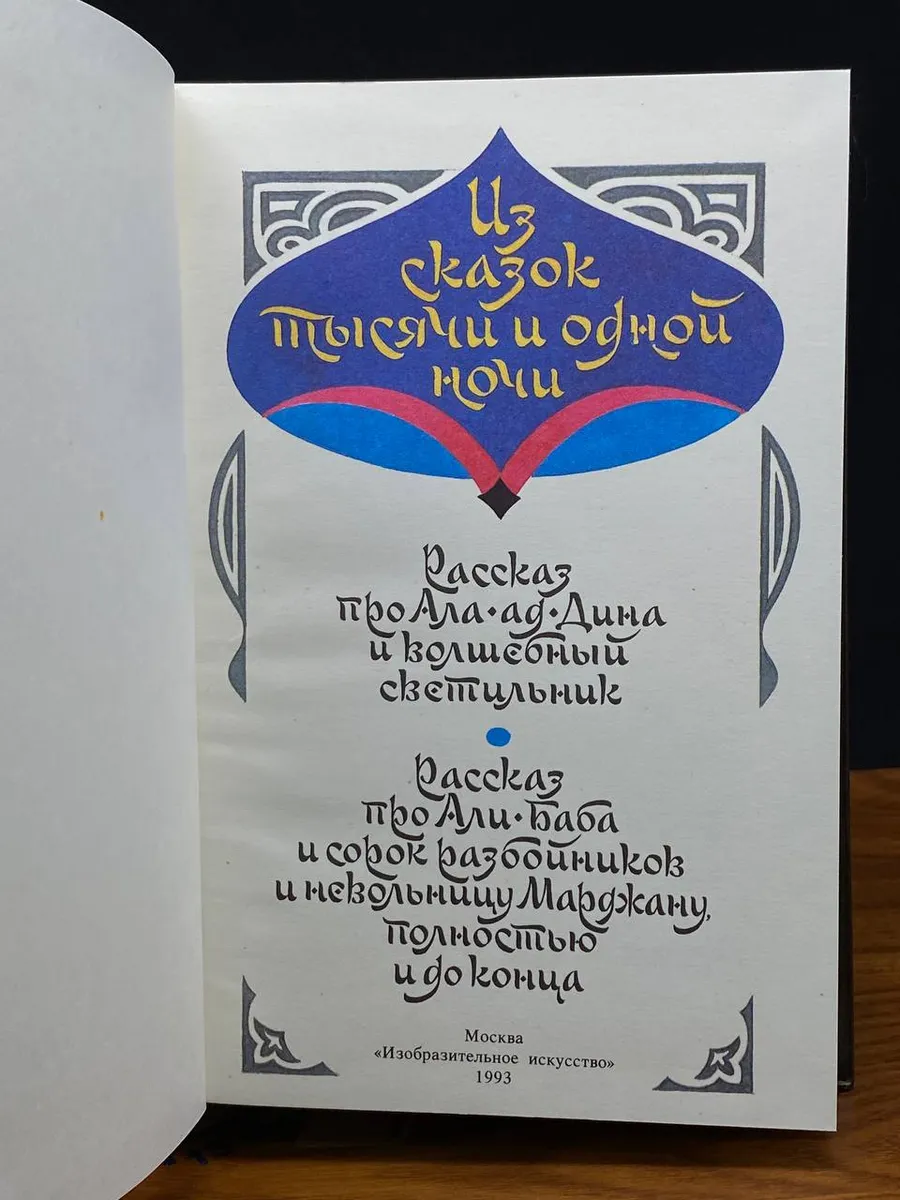 Из
сказок
тысячи и одной
ночи
Рассказ
про Ала·ад·Дина
и волшебный
светильник
Рассказ
про Али·Баба
и сорок разбойников
и невольницу Марджану,
полностью
и до конца
Москва
«Изобразительное искусство»
1993